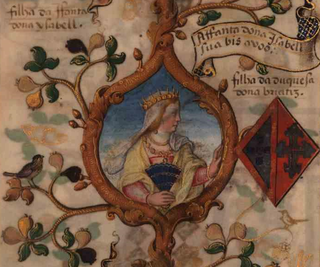 filha da Iffanta
dona ysabell.
A Iffanta dona Isabell
sua bis avoo.
filha da duquesa
dona briatiz.